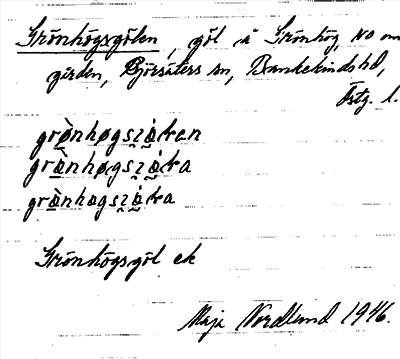 Grönhögsgölen, göl å Grönhög, NO om
gården, Björsäters sn, Bankekinds hd,
Östg. l.
grò̱nhøgsz̨ǻken
grà̱nhøgsz̨ǻka
grò̱nhagsz̨ǻka
Grönhögsgöl ek
Maja Nordlund 1946.